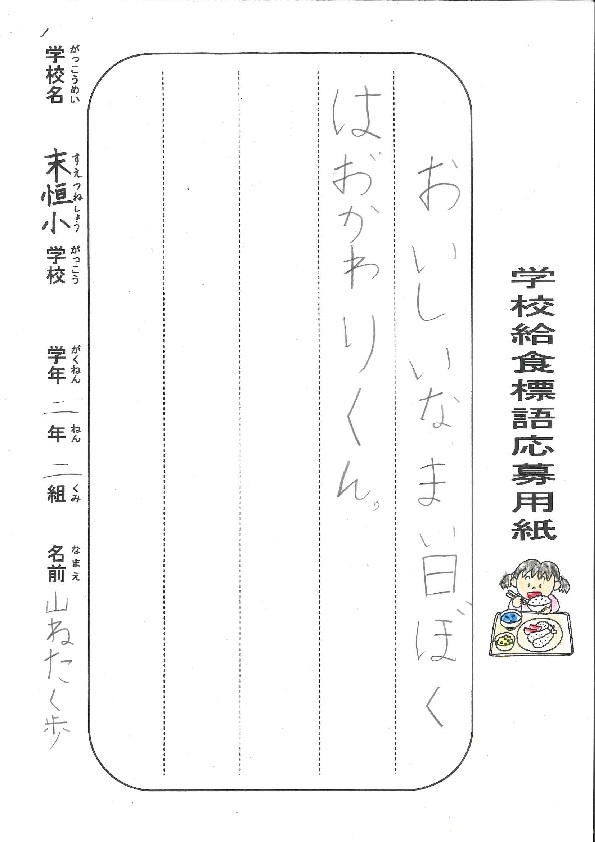 学校給食標語応募用紙
おいしいなまい日ぼく
はおかわりくん。
学校名 末恒小学校 学年 二年 二組 名前 山ねたく歩
がっこうめい すえつねしょうがっこう がくねん ねん くみ なまえ